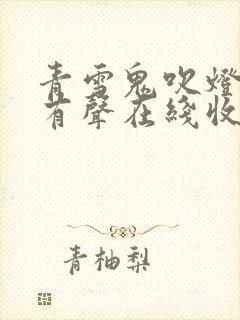 青雪鬼吹燈
有聲在綫收
青柚梨